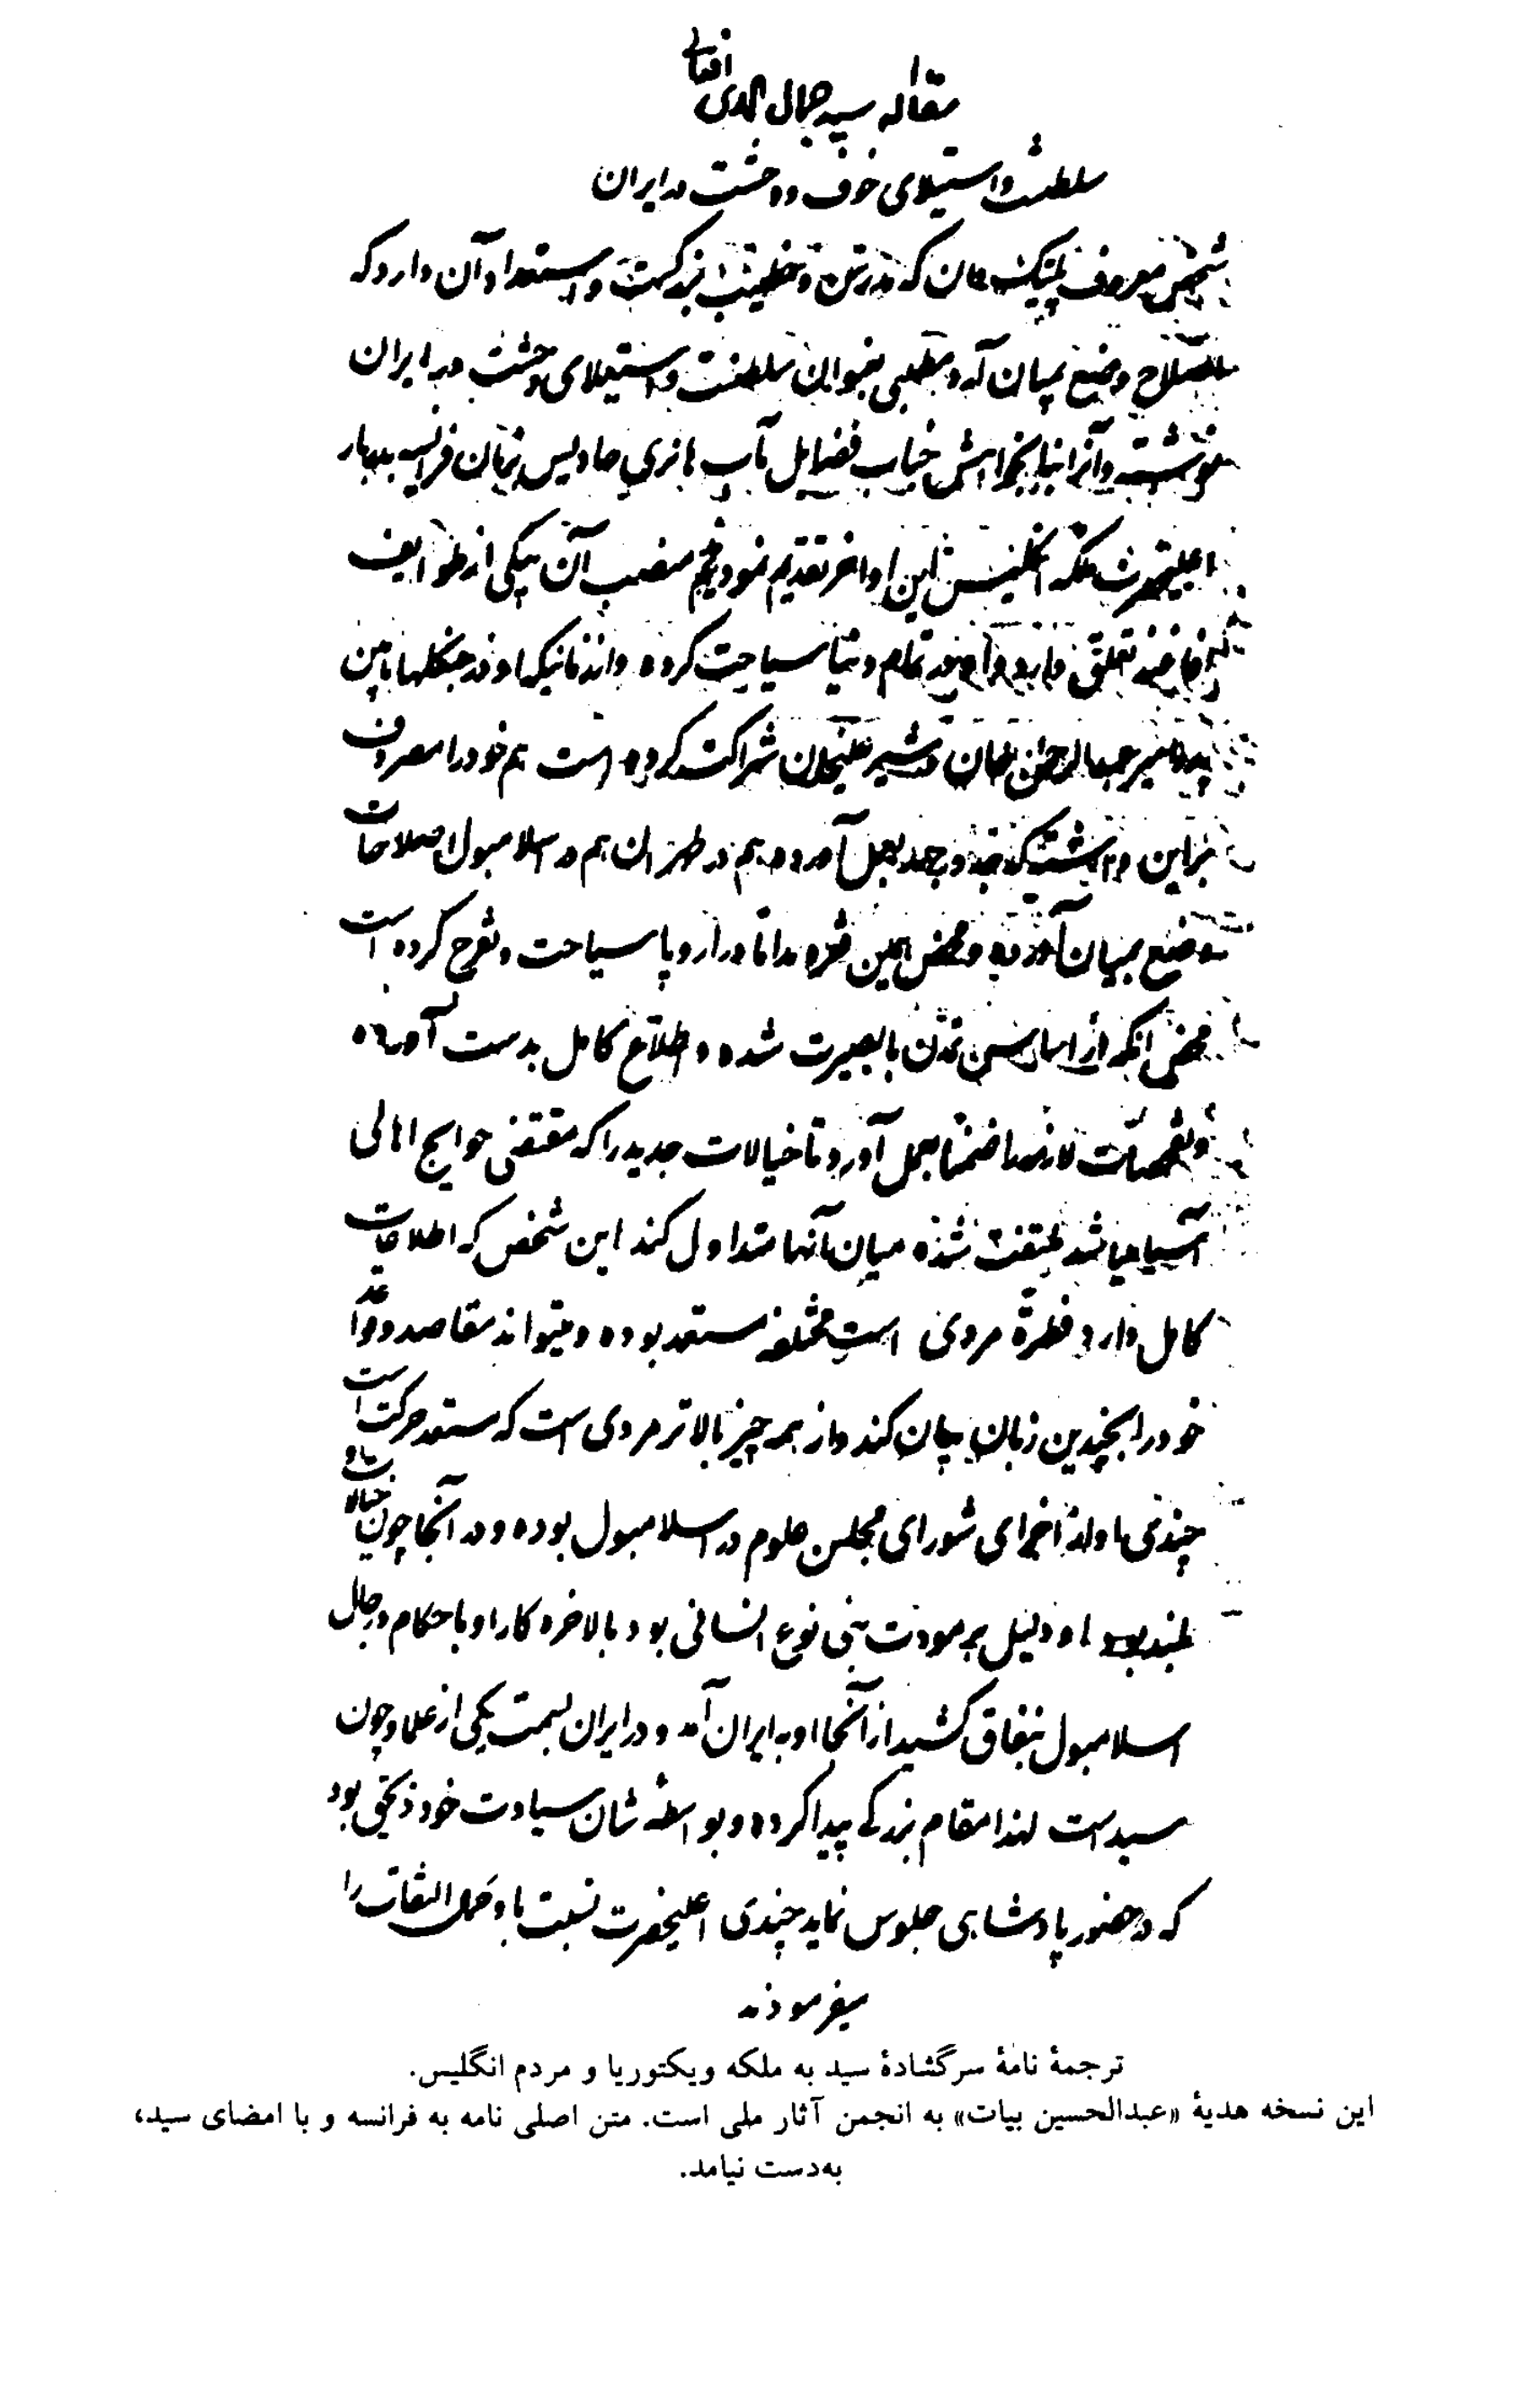 مقاله سید جمال الدین افغانی
سلطنت و استیلای خوف و وحشت در ایران
شخص معروف که و خطیب بزرگست و استعداد آن دارد که
اصلاح وضع بمیان آورد مطلبی بعنوان سلطنت و استیلای وحشت در ایران
نوشته و آنرا بنا بخواهش جناب فضایل مآب هاویس بزبان فرانسه
اعلیحضرت ملکه انگلیس این اواخر تقدیم نمود منصب آن بیکی از طوایف
افاغنه تعلق دارد و او در تمام دنیا سیاحت کرده و از زمانیکه او در جنگلها بین
امیر عبدالرحمن خان و شیر علیخان شراکت کرده است هم خود را مصروف
براین داشته که جد و جهد بعمل آورده هم در طهران هم در اسلامبول اصلاحات
وضع بمیان آورده و محض همین فقره در اروپا سیاحت و تفرج کرده است
محض اینکه از اساس تمدن با بصیرت شده و اطلاع کامل بدست آورده
و تفحصات لازمه را ضمنا بعمل آورد تا خیالات جدید را که مقتضی حوایج اهالی
آسیا میباشد ملتفت شده میان آنها متداول کند این شخص که اطلاعات
کامل دارد فطرة مردی است مستعد بوده و میتواند مقاصد و قواعد
خود را بچندین زبان بیان کند و از همه چیز بالاتر مردی است که مستعد حرکت است
چندی اجزای شورای مجلس علوم در اسلامبول بوده و در آنجا چون خیالات
بلند او دلیل بر مودت بنی نوع انسانی بود بالاخره کار او با حکام و رجال
اسلامبول بنفاق کشید از آنجا او به ایران آمد و در ایران بسمت یکی از علما و چون
سید است لهذا مقام بزرگی پیدا کرده و بواسطه شان سیادت خود ذیحق بود
که در حضور پادشاهی جلوس نماید چندی اعلیحضرت نسبت باو کمال التفات را
میفرمودند
ترجمهٔ نامهٔ سرگشادهٔ سید به ملکه ویکتوریا و مردم انگلیس.
این نسخه هدیهٔ «عبدالحسین بیات» به انجمن آثار ملی است. متن اصلی نامه به فرانسه و با امضای سید،
به‌دست نیامد.